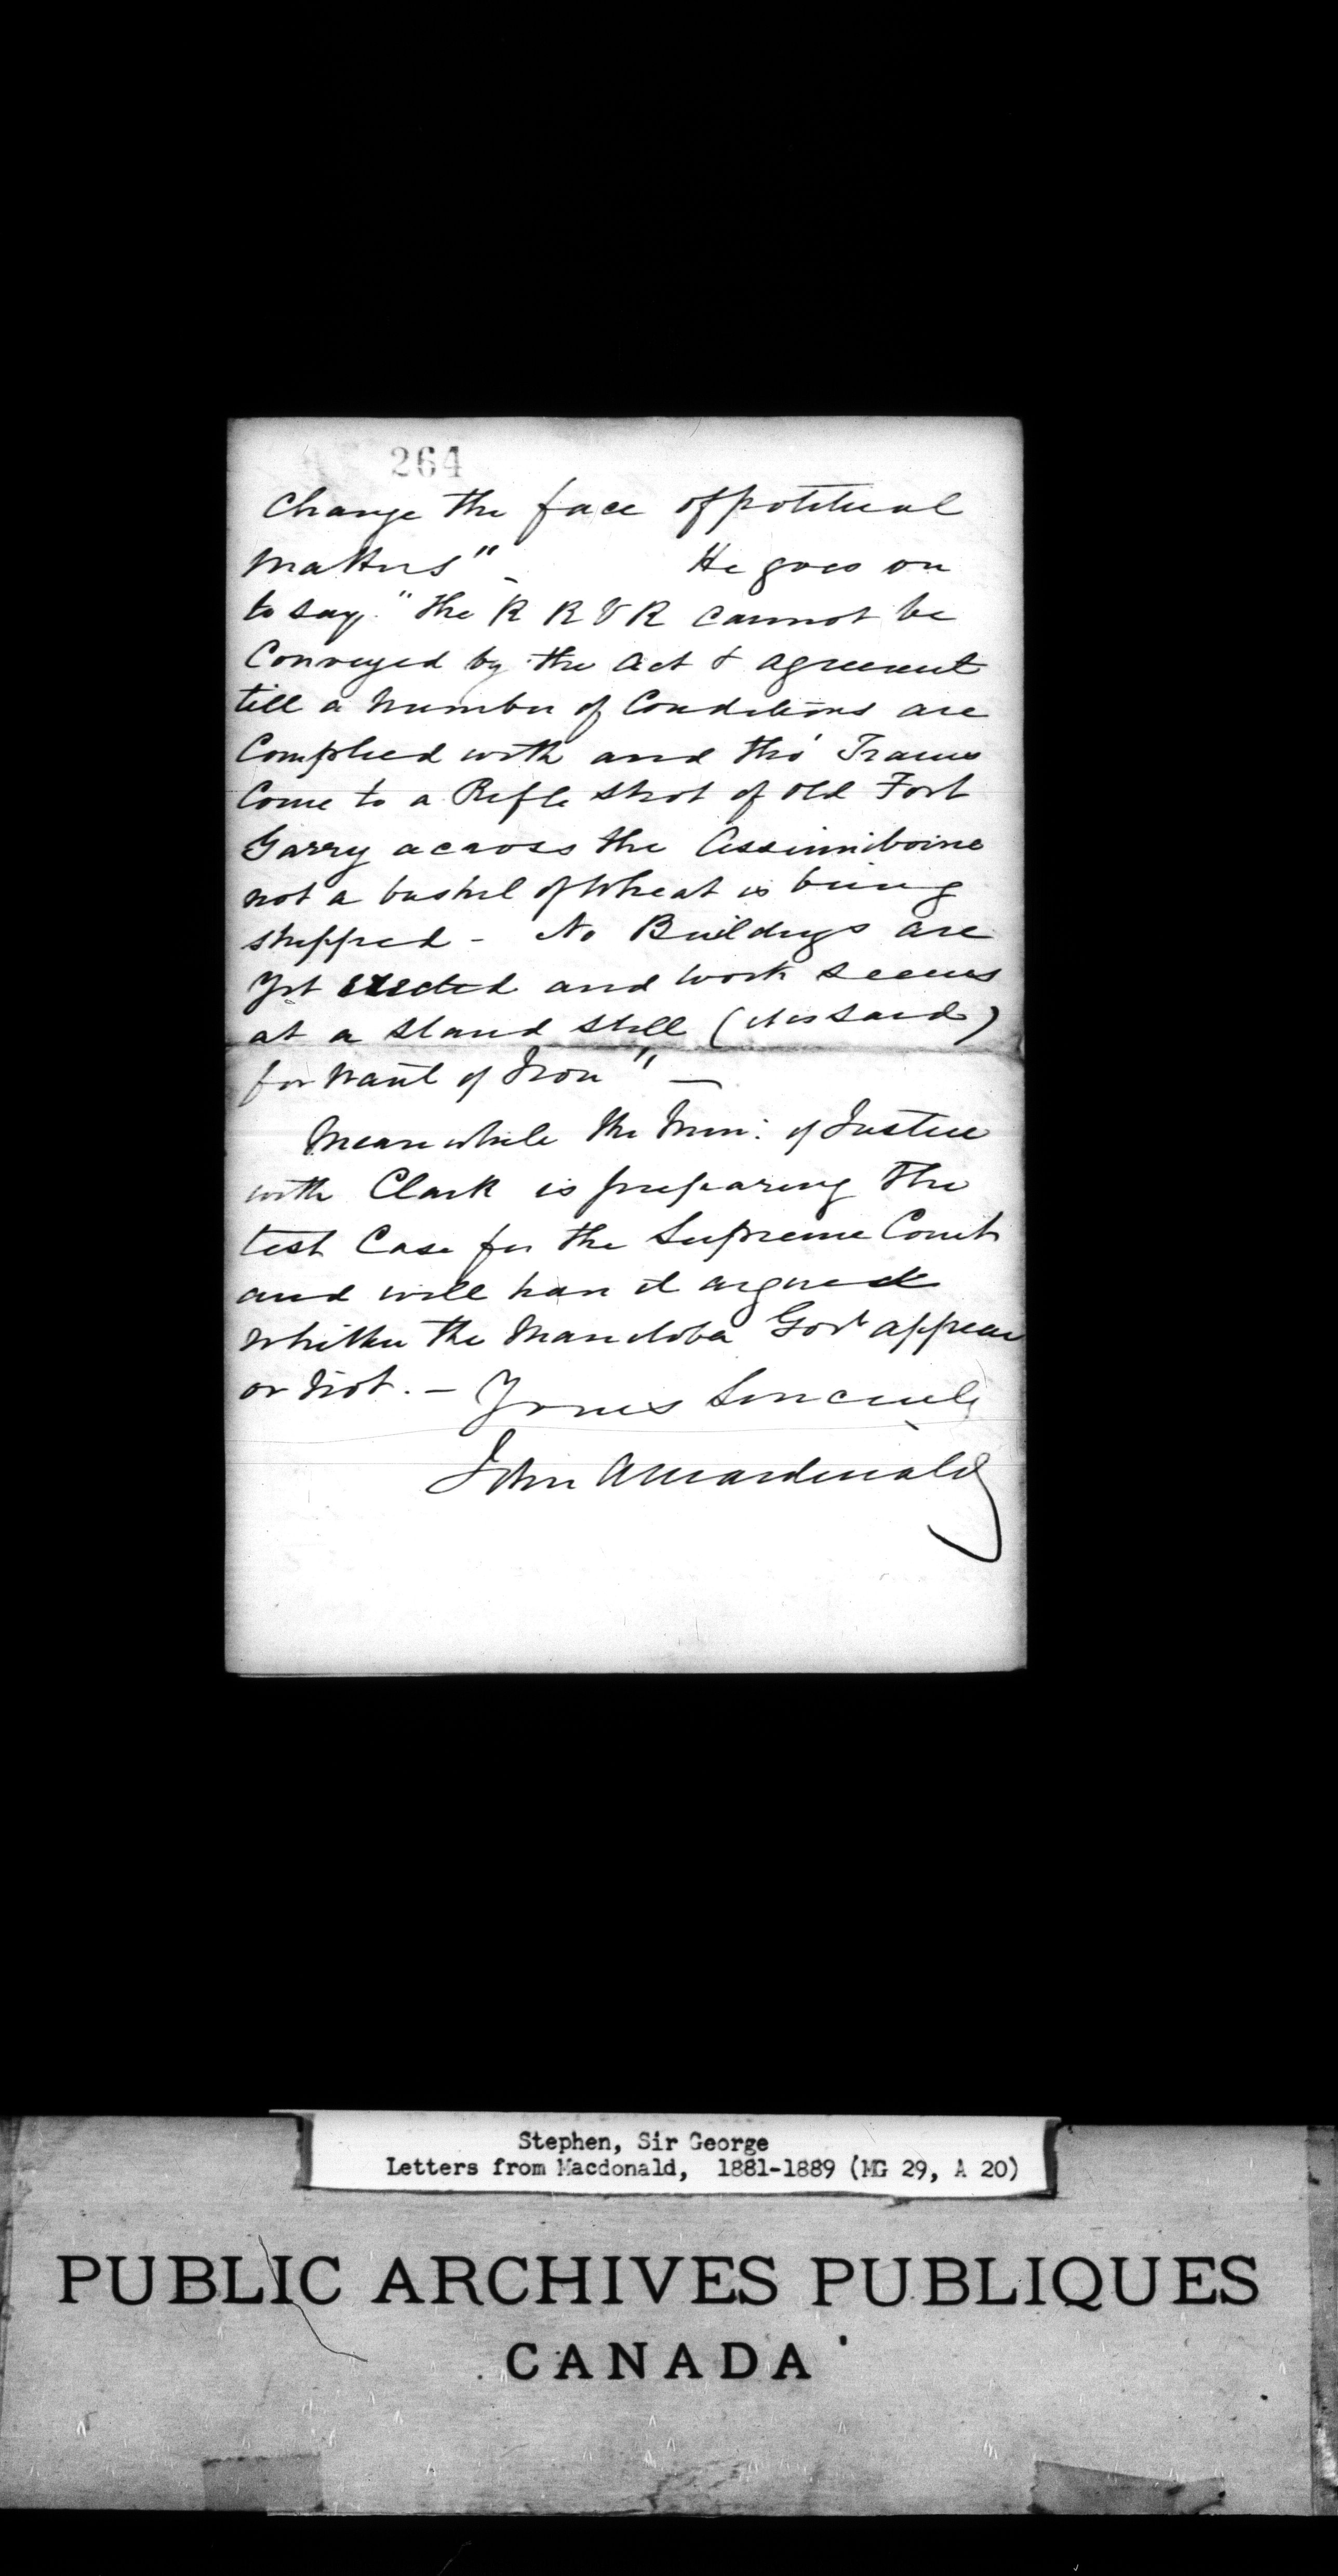 264
Change the face of political
matters" He goes on
to say. "The R R V R cannot be
Conveyed by the Act & Agreement
till a number of Conditions are
Complied with and tho' Trains
Come to a Rifle shot of old Fort
Garry across the Assinniboine
not a bushel of Wheat is being
shipped - No Buildings are
yet erected and work seems
at a stand still (it is said)
for want of Iron" —
Meanwhile the Min: of Justice
with Clark is preparing the
test Case for the Supreme Court
and will have it argued
whether the Manitoba Govt appear
or not. — Yours Sincerely
John A Macdonald
Stephen, Sir George
Letters from Macdonald, 1881-1889 (MG 29, A 20)
PUBLIC ARCHIVES PUBLIQUES
CANADA